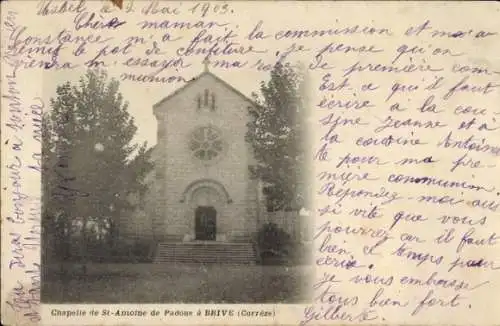 2 Mai 1903.
Chère maman,
Constance m'a fait la commission et m'a
remis le pot de confiture. je pense qu'on
viendra m'essayer ma robe de première com
munion
Est ce qu'il faut
écrire à la cou
sine Jeanne et à
la cousine Antoinette
pour ma pre
mière communion
Répondez-moi aus
si vite que vous
pourrez car il faut
bien le temps pour
écrire.
je vous embrasse
tous bien fort.
Gilberte.
bonjour à
Chapelle de St-Antoine de Padoue à BRIVE (Corrèze)